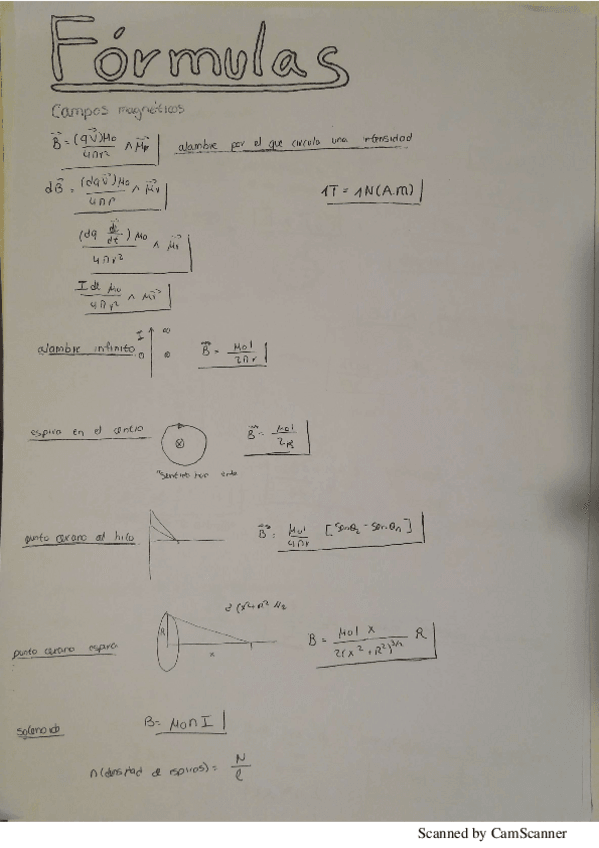 Fórmulas
Campos magnéticos
B⃗ = (q v⃗) μ₀ / 4πr² ∧ μ⃗r alambre por el que circula una intensidad
dB⃗ = (dq v⃗) μ₀ / 4πr ∧ μ⃗r 1T = 1N(A.m)
(dq dl⃗/dt) μ₀ / 4πr² ∧ μ⃗r
I dl μ₀ / 4πr² ∧ μ⃗r
I ∞
alambre infinito B⃗ = μ₀I / 2πr
espira en el centro B⃗ = μ₀I / 2R
"Sentido
punto cercano al hilo B⃗ = μ₀I / 4πr [senθ₂ - senθ₁]
R x
punto cercano espira B = μ₀I x / 2(x² + R²)^3/2 R
solenoide B = μ₀nI
n(densidad de espiras) = N / l
Scanned by CamScanner